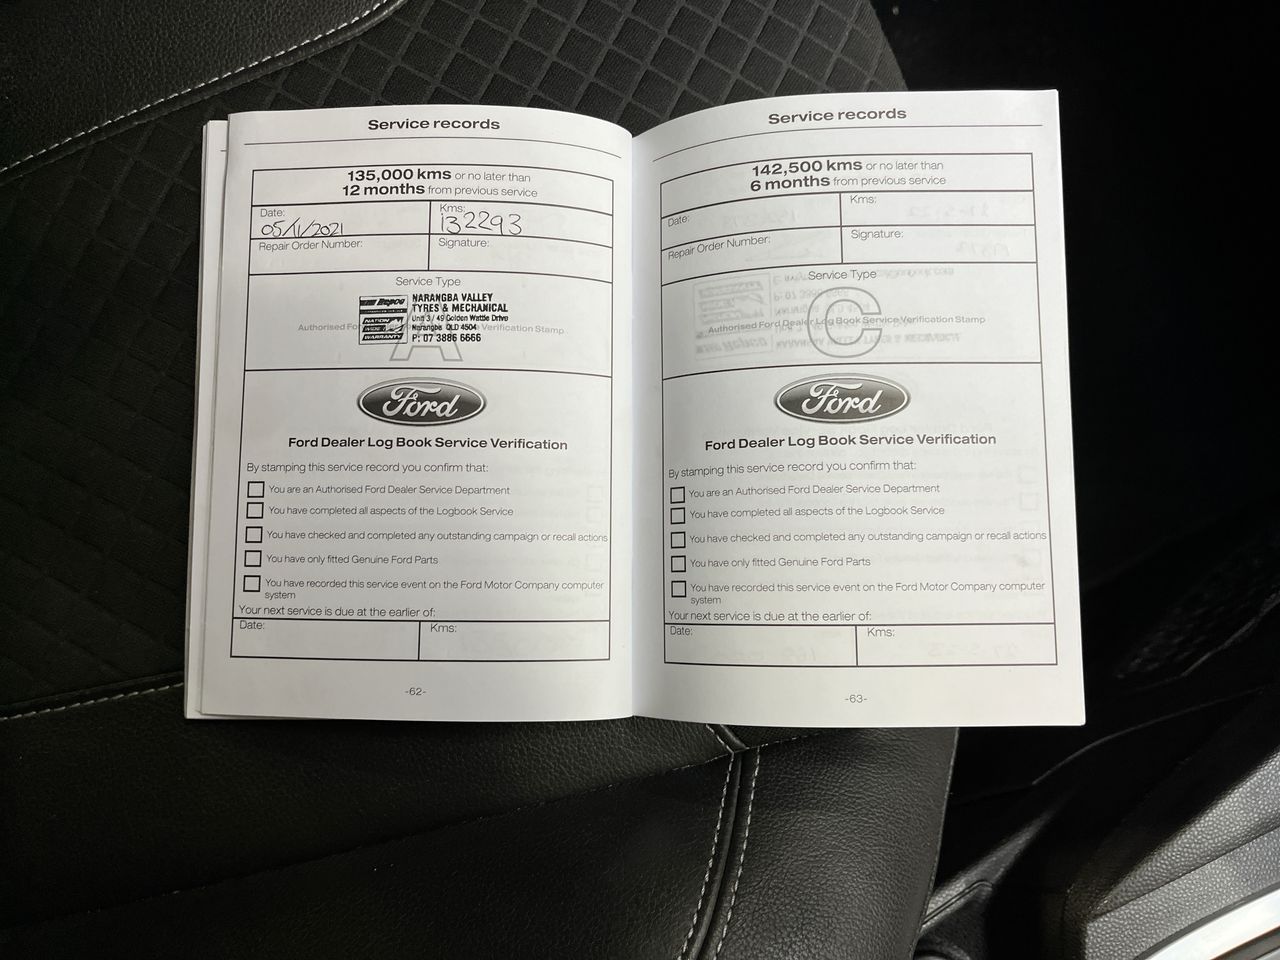 Service records
135,000 kms or no later than
12 months from previous service
Date:
05/11/2021
Kms:
132293
Repair Order Number:
Signature:
Service Type
Repco
NATION
WIDE
WARRANTY
NARANGBA VALLEY
TYRES & MECHANICAL
Unit 3 / 49 Golden Wattle Drive
Narangba QLD 4504
P: 07 3886 6666
Authorised For Verification Stamp
A
Ford
Ford Dealer Log Book Service Verification
By stamping this service record you confirm that:
You are an Authorised Ford Dealer Service Department
You have completed all aspects of the Logbook Service
You have checked and completed any outstanding campaign or recall actions
You have only fitted Genuine Ford Parts
You have recorded this service event on the Ford Motor Company computer
system
Your next service is due at the earlier of:
Date:
Kms:
-62-
Service records
142,500 kms or no later than
6 months from previous service
Date:
Kms:
Repair Order Number:
Signature:
Service Type
Authorised Ford Dealer Log Book Service Verification Stamp
C
Ford
Ford Dealer Log Book Service Verification
By stamping this service record you confirm that:
You are an Authorised Ford Dealer Service Department
You have completed all aspects of the Logbook Service
You have checked and completed any outstanding campaign or recall actions
You have only fitted Genuine Ford Parts
You have recorded this service event on the Ford Motor Company computer
system
Your next service is due at the earlier of:
Date:
Kms:
-63-